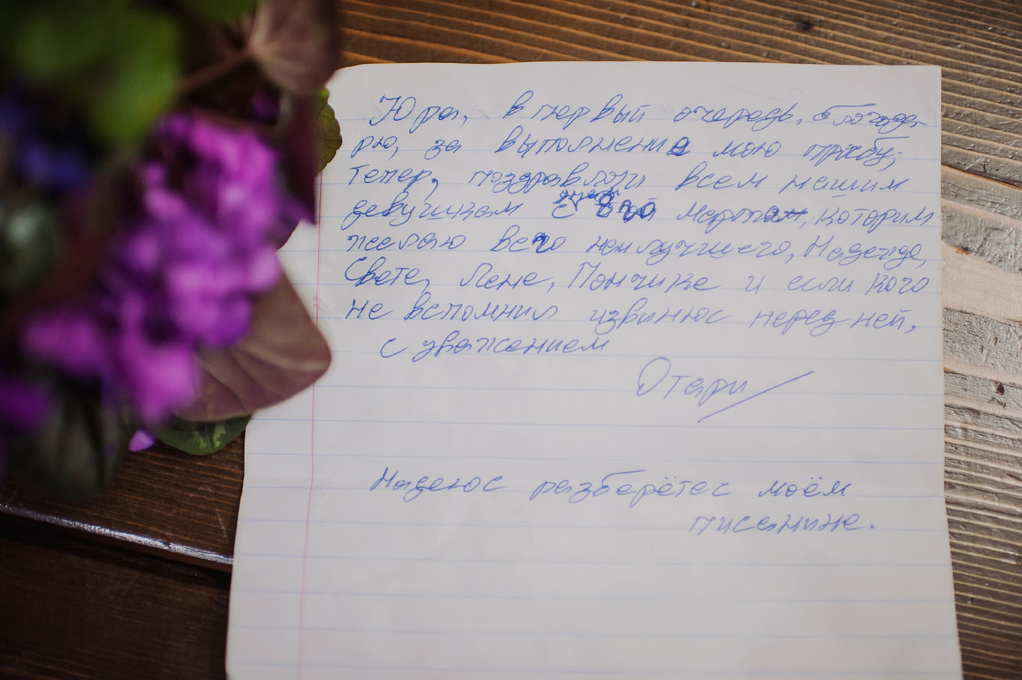 Юра, в первый очередь, благода
рю, за выполнение мою прозбу;
тепер, поздравляю всем нашим
девушкам с 8го Мартам, которим
желаю всего наилучшего, Надежда,
Свете, Лене, Пончике и если кого
не вспомнил извинюс перез ней,
с уважением
Отари
Надеюс разберётес моём
писанине.